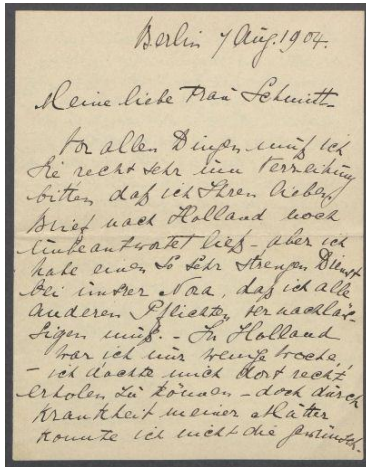 Berlin 7 Aug. 1904.
Meine liebe Frau Schmitt
Vor allen Dingen muß ich
Sie recht sehr um Verzeihung
bitten daß ich Ihren lieben
Brief nach Holland noch
unbeantwortet ließ – aber ich
habe einen so sehr strengen Dienst
bei unsrer Nora, daß ich alle
anderen Pflichten vernachläs-
sigen muß. – In Holland
war ich nur wenige Woche,
– ich dachte mich dort recht
erholen zu können – doch durch
Krankheit meiner Mutter
konnte ich nicht die gewünsch-